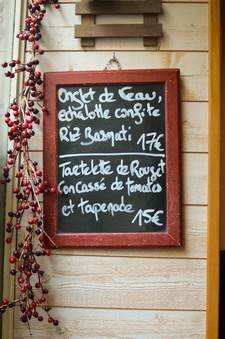 Onglet de Veau,
echalotte confite
Riz Basmati 17€
Tartelette de Rouget
Concassé de tomates
et tapenade
15€